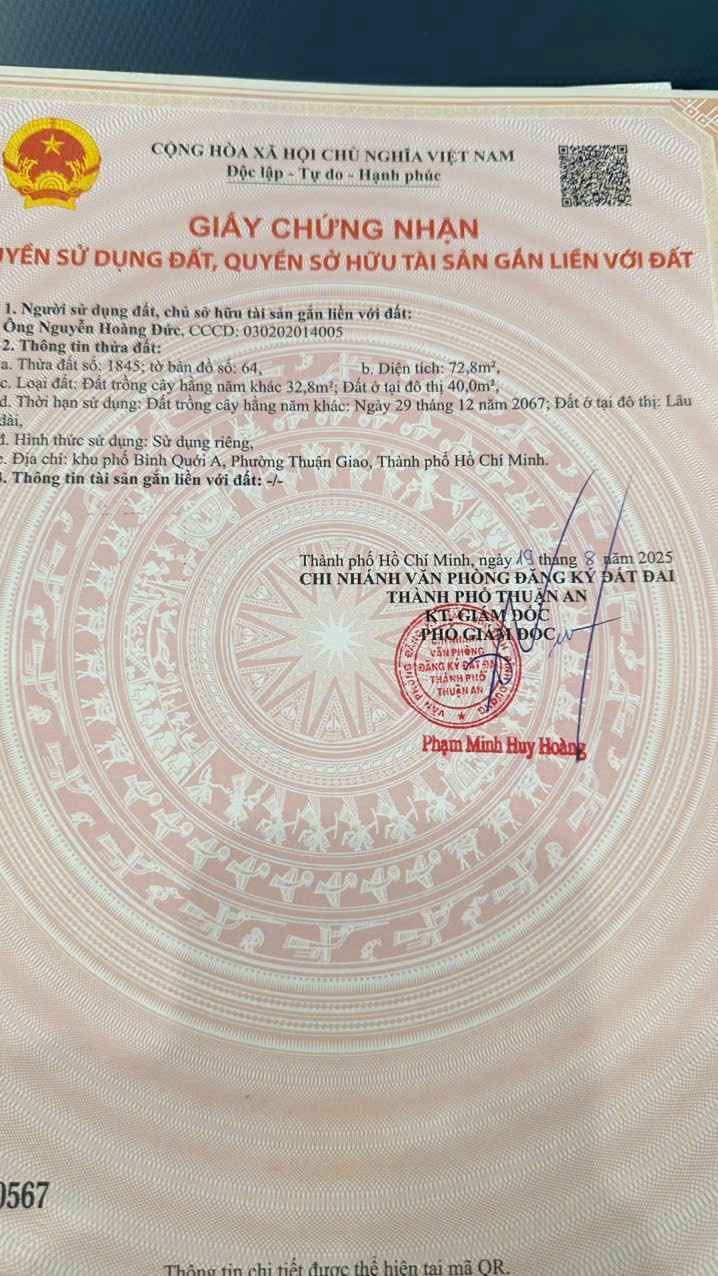 CỘNG HÒA XÃ HỘI CHỦ NGHĨA VIỆT NAM
Độc lập - Tự do - Hạnh phúc
GIẤY CHỨNG NHẬN
UYỀN SỬ DỤNG ĐẤT, QUYỀN SỞ HỮU TÀI SẢN GẮN LIỀN VỚI ĐẤT
1. Người sử dụng đất, chủ sở hữu tài sản gắn liền với đất:
Ông Nguyễn Hoàng Đức, CCCD: 030202014005
2. Thông tin thửa đất:
a. Thửa đất số: 1845; tờ bản đồ số: 64, b. Diện tích: 72,8m²,
c. Loại đất: Đất trồng cây hằng năm khác 32,8m²; Đất ở tại đô thị 40,0m²,
d. Thời hạn sử dụng: Đất trồng cây hằng năm khác: Ngày 29 tháng 12 năm 2067; Đất ở tại đô thị: Lâu
dài,
đ. Hình thức sử dụng: Sử dụng riêng,
e. Địa chỉ: khu phố Bình Quới A, Phường Thuận Giao, Thành phố Hồ Chí Minh.
3. Thông tin tài sản gắn liền với đất: -/-
Thành phố Hồ Chí Minh, ngày 19 tháng 8 năm 2025
CHI NHÁNH VĂN PHÒNG ĐĂNG KÝ ĐẤT ĐAI
THÀNH PHỐ THUẬN AN
KT. GIÁM ĐỐC
PHÓ GIÁM ĐỐC
VĂN PHÒNG
ĐĂNG KÝ ĐẤT ĐAI
THÀNH PHỐ
THUẬN AN
Phạm Minh Huy Hoàng
0567
Thông tin chi tiết được thể hiện tại mã QR.